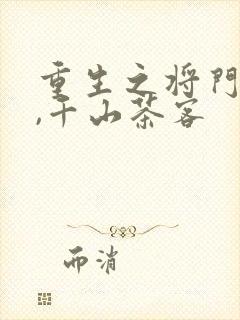 重生之将门
,千山茶客
而消